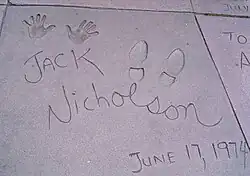 JULY
TO
JACK
A
Nicholson
JUNE 17, 1974